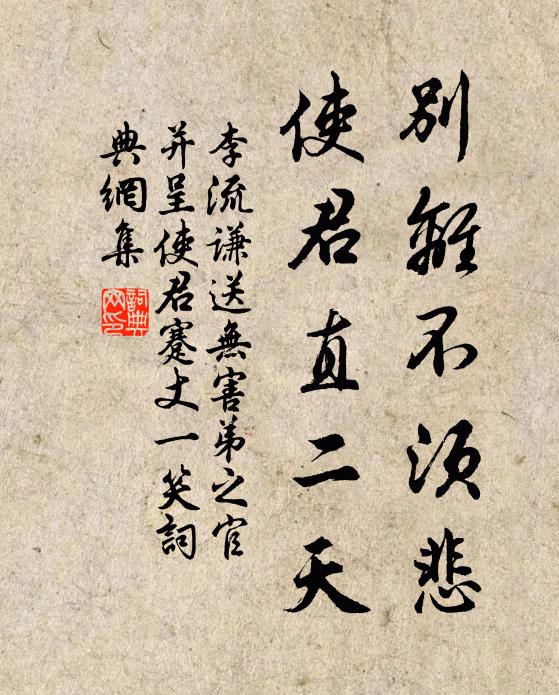 別離不須悲
使君直二天
李流謙送無害弟之官
并呈使君蹇丈一笑詞
典網集
詞典
网印